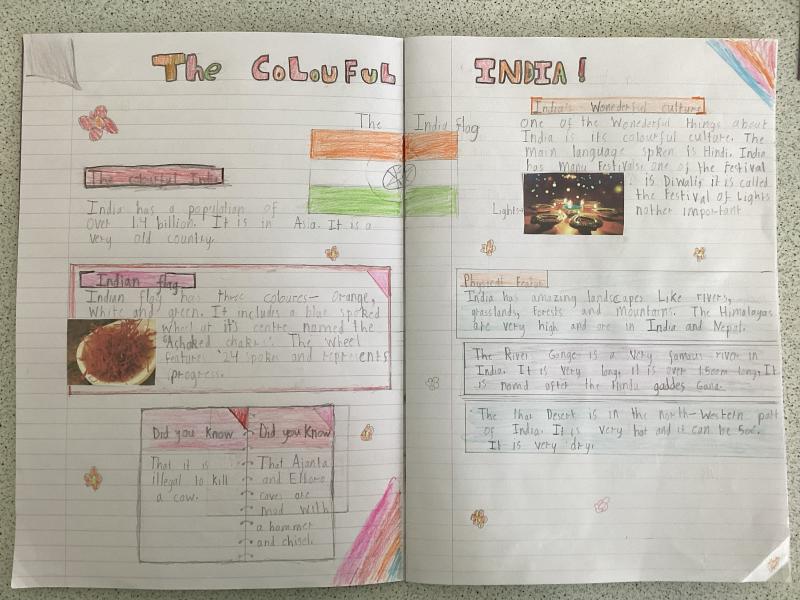 The CoLouFuL INDIA!
The India flag
The colorful India
India has a population of
over 1.4 billion. It is in Asia. It is a
very old country.
Indian flag
Indian flag has three colours- Orange,
White and green. It includes a blue spoked
wheel at it's centre named the
"Achoked chakra". The wheel
features 24 spokes and represents
progress.
Did you Know
That it is
illegal to kill
a cow.
Did you Know
That Ajanta
and Ellora
caves are
mad with
a hammer
and chisel.
India's Wonederful culture
One of the Wonederful things about
India is its colourful culture. The
main language spken is Hindi. India
has many Festivals. one of the festival
is Diwali, it is called
the Festival of Lights
nother important
Lights
Physical Featur
India has amazing landscapes Like rivers,
grasslands, forests and mountains. The Himalayas
are very high and are in India and Nepal.
The River Gange is a very famous river in
India. It is very long, it is over long. It
is namd after the Hindu goddes Gana.
The thar Desert is in the north-Western part
of India. It is very hot and it can be 50c.
It is very dry.